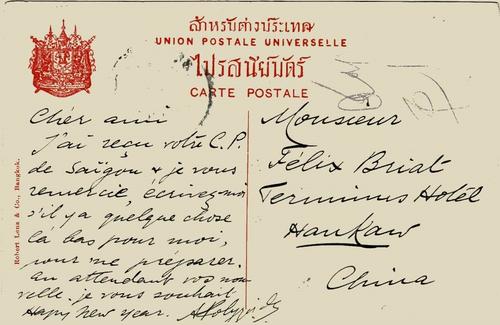 สำหรับต่างประเทศ
UNION POSTALE UNIVERSELLE
ไปรสนียบัตร์
CARTE POSTALE
Cher ami
J'ai reçu votre C.P.
de Saïgon & je vous
remercie, écrivez-moi
s'il y a quelque chose
là bas pour moi,
pour me préparer.
en attendant vos nou-
velle. je vous souhait
Happy New Year.
Monsieur
Félix Briat
Terminus Hotel
Hankaw
China
Robert Lenz & Co., Bangkok.